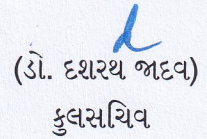 (ડો. દશરથ જાદવ)
કુલસચિવ